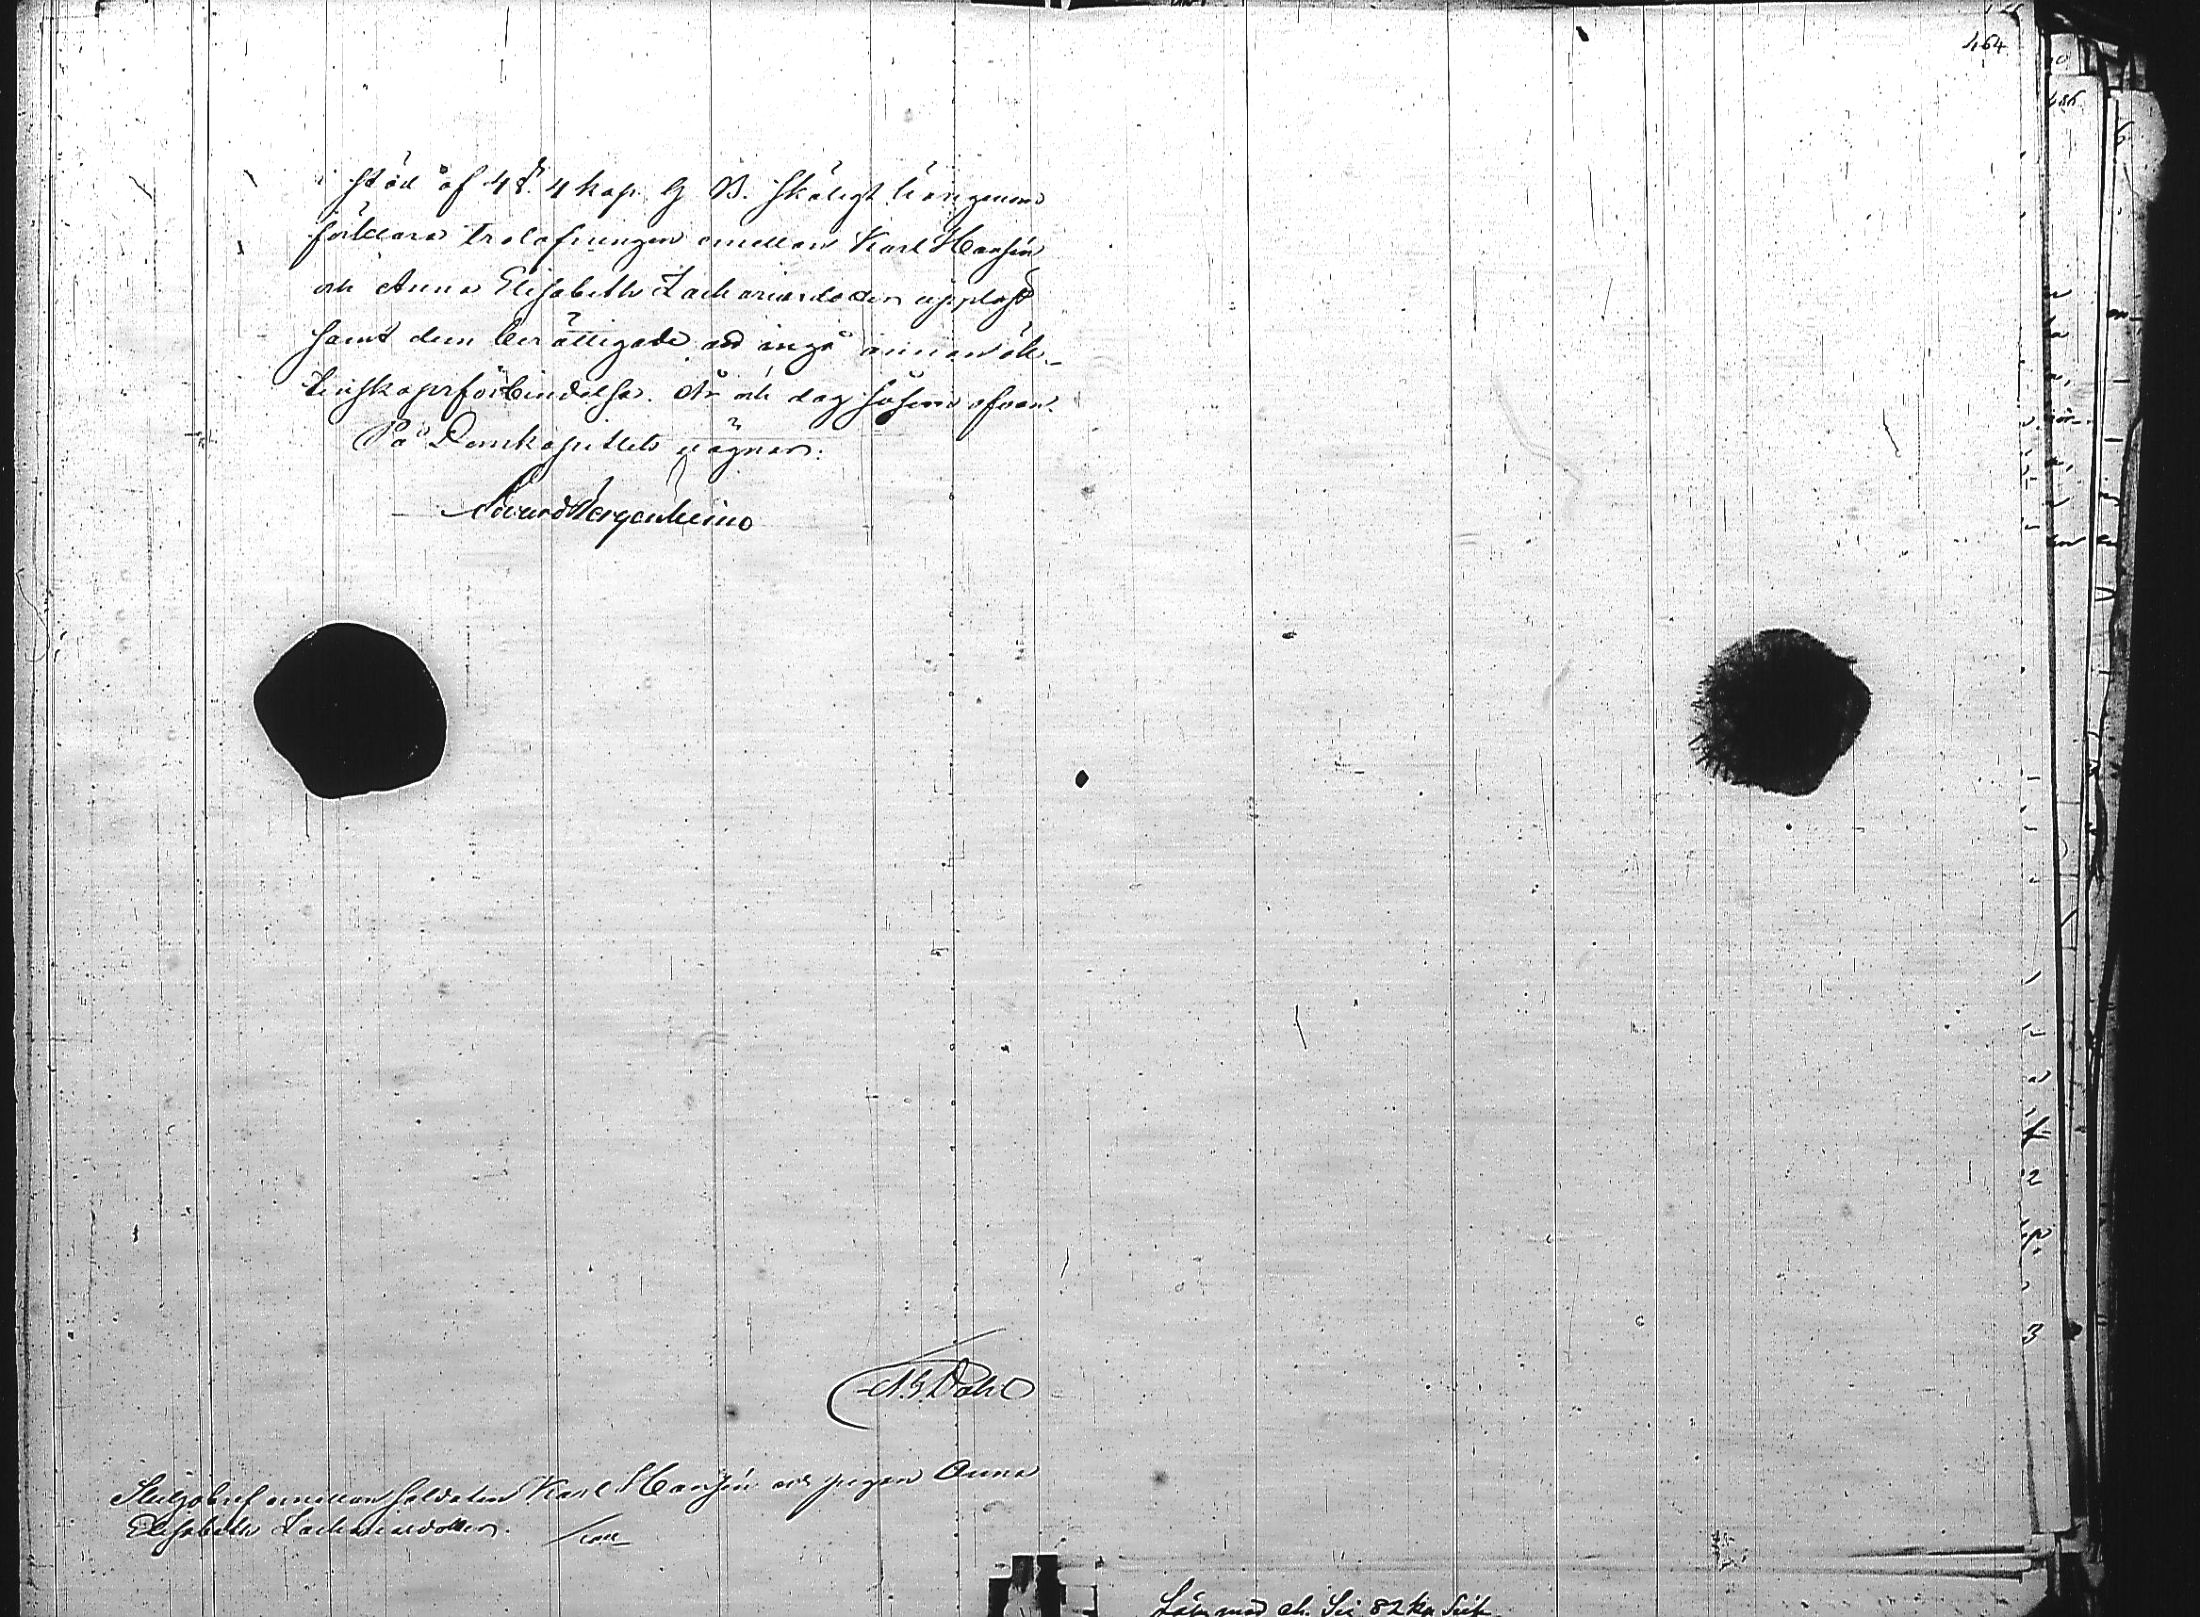 464
i stöd af 4 §. 4 kap. G. B. skäligt härigenom
förklara trolofningen emellan Karl Hansén
och Anna Elisabeth Zachariasdotter upplöst
samt dem berättigade att ingå annan äk-
tenskapsförbindelse. År och dag såsom ofvan.
På Domkapitlets vägnar:
Edvard Bergenheim
A. G. Dahl
Skiljobref emellan soldaten Karl Hansén och pigan Anna
Elisabeth Zachariasdotter.
82